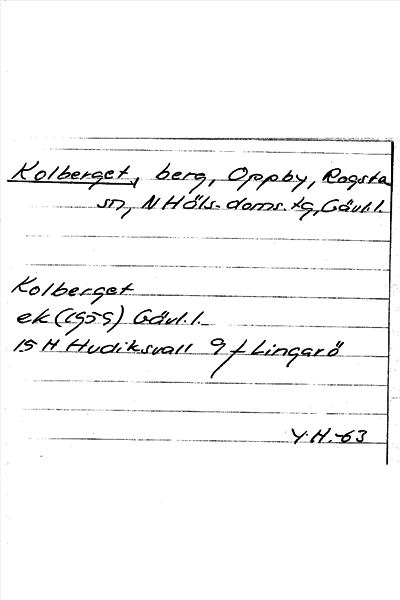 Kolberget, berg, Oppby, Rogsta
sn, N Häls. doms. tg, Gävl.l.
Kolberget
ek (1959) Gävl.l.
15 H Hudiksvall 9 f Lingarö
Y.H.-63